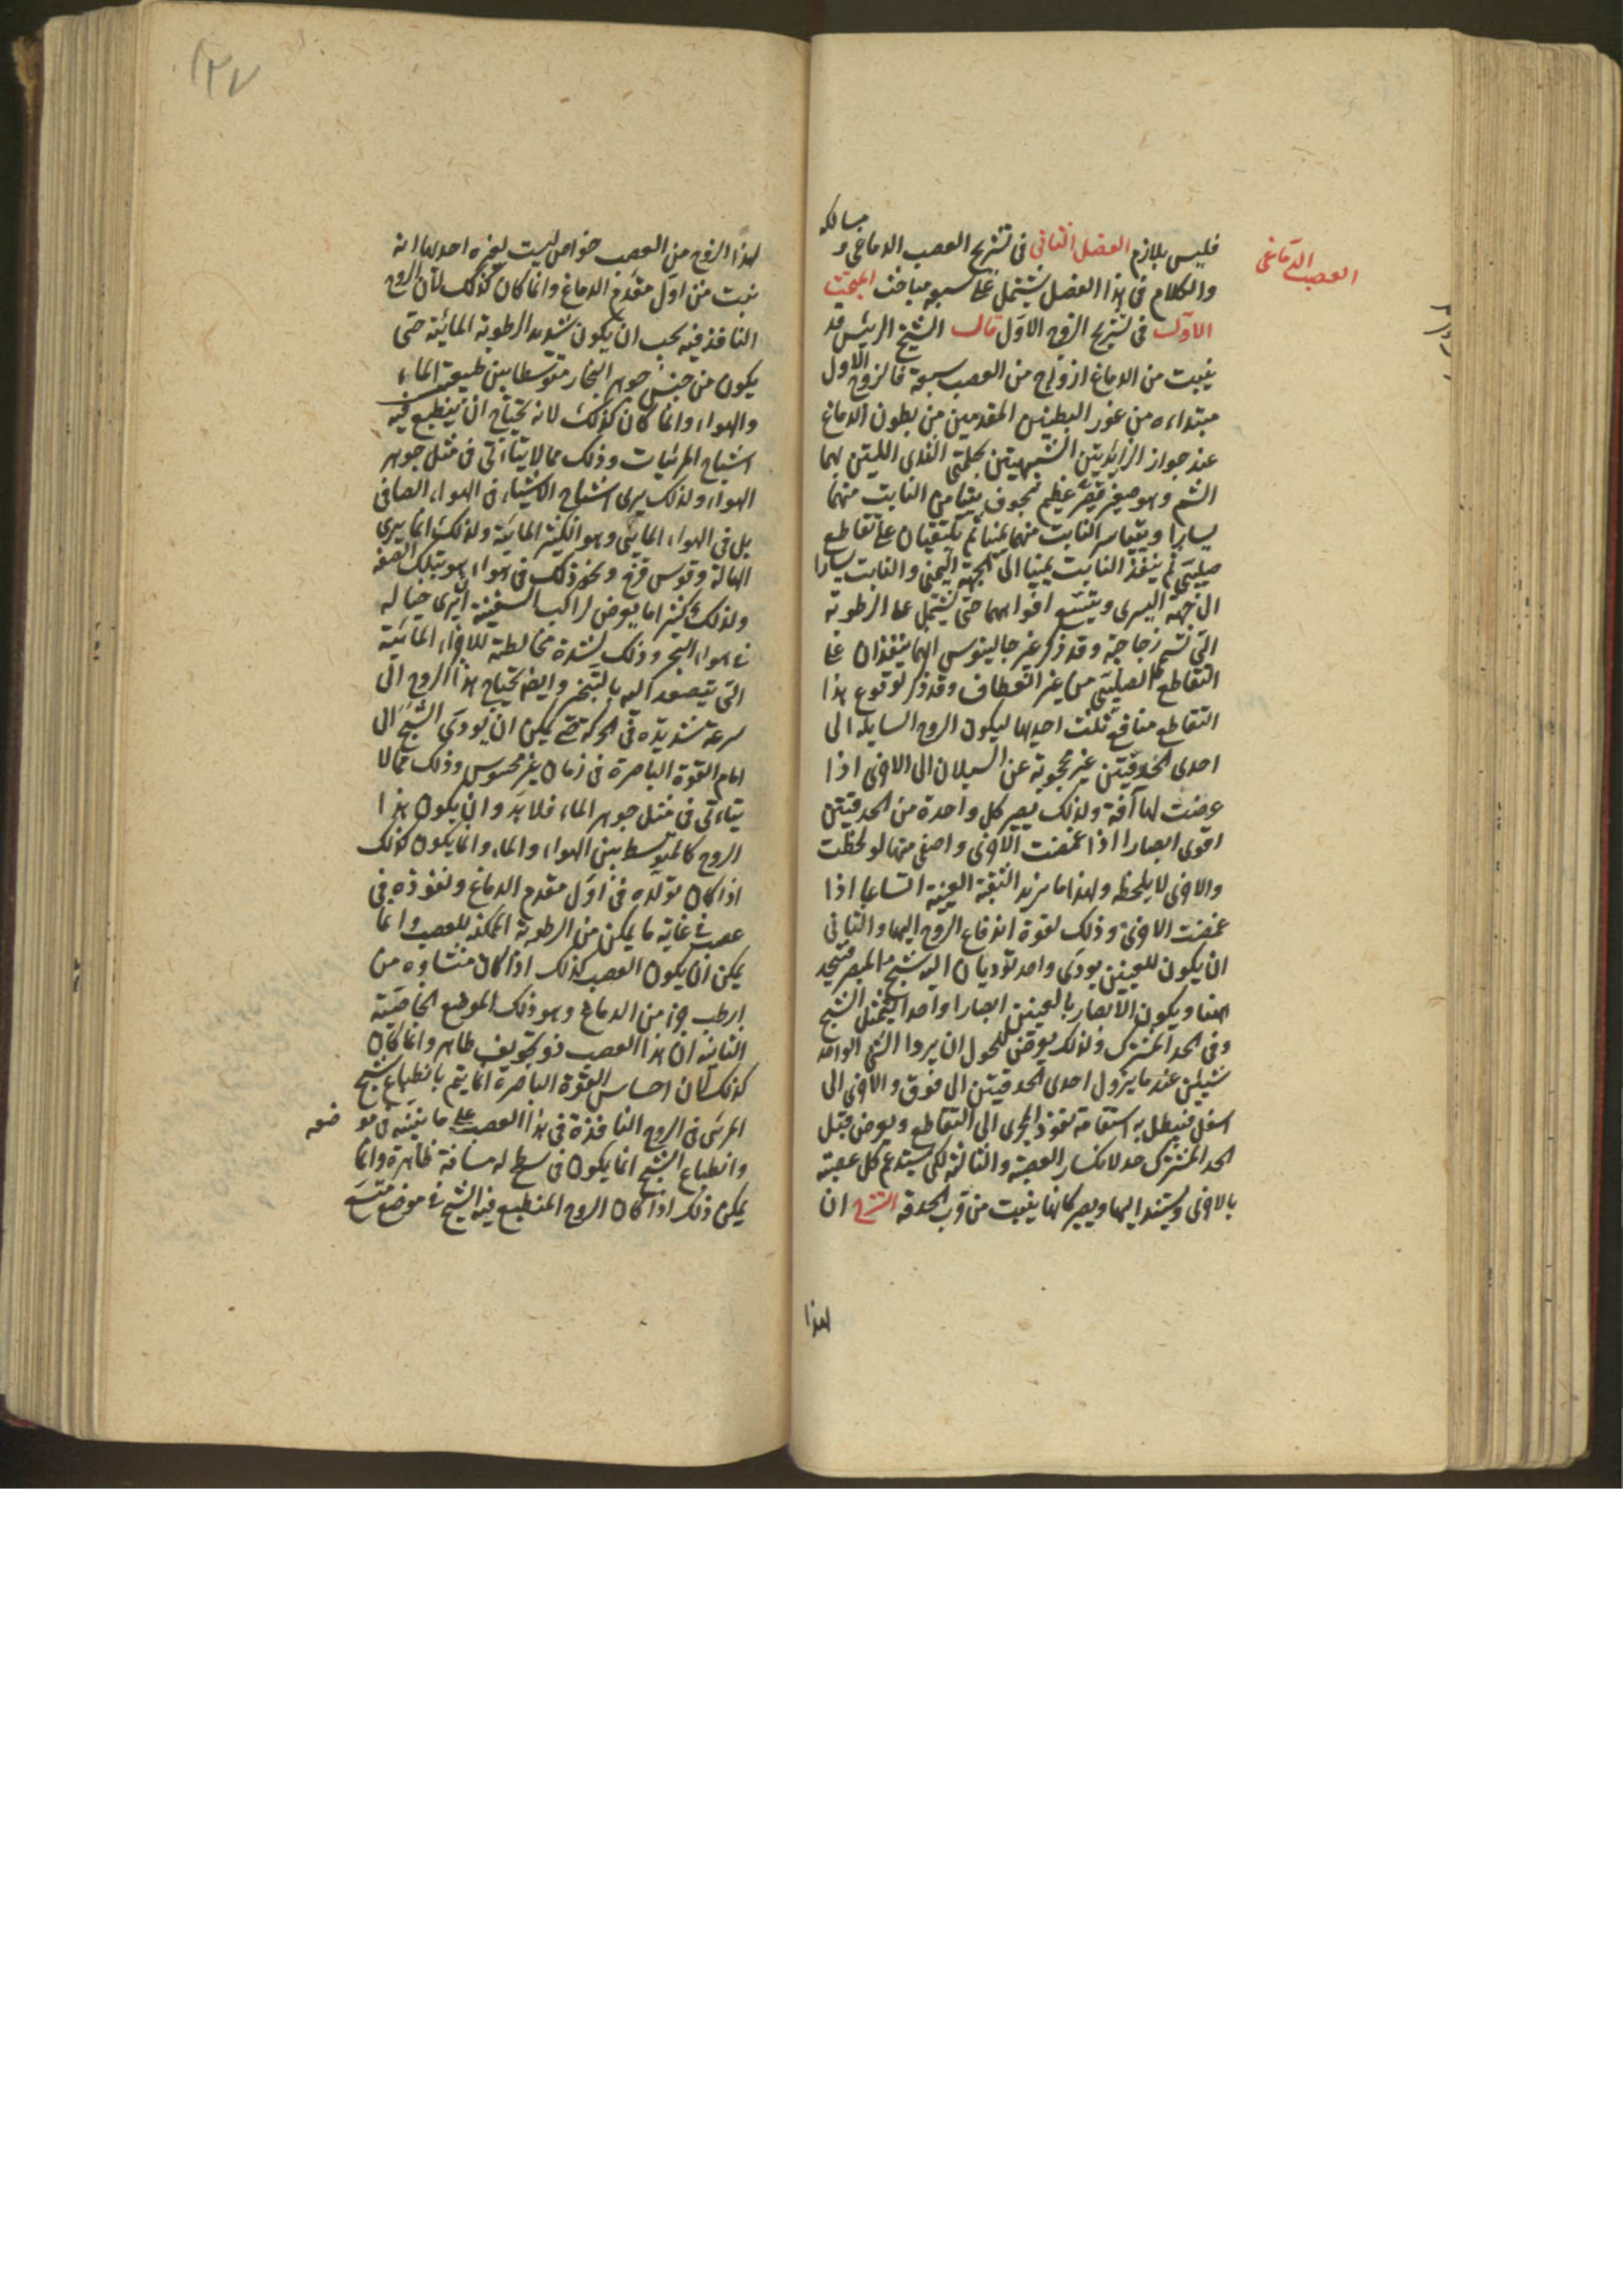 العصب الدماغى
مسالكه
فليس بلازم الفصل الثانى فى تشريح العصب الدماغى و
والكلام فى هذا الفصل يشتمل على سبع مباحث المبحث
الاول فى تشريح الزوج الاول قال الشيخ الرئيس قد
ينبت من الدماغ ازواج من العصب سبعة فالزوج الاول
مبتداءه من غور البطنين المقدمين من بطون الدماغ
عند جواز الزايدتين الشبيهتين بحلمتى الثدى اللتين بهما
الشم وهو صغير عظيم مجوف يتيامن النابت منهما
يسارا ويتياسر النابت منهما يمينا ثم يلتقيان على تقاطع
صليبى ثم ينفذ النابت يمينا الى الجهة اليمنى والنابت يسارا
الى جهة اليسرى ويتسع افواههما حتى يشتمل على الرطوبة
التى تسمى زجاجية وقد ذكر غير جالينوس انهما ينفذان على
التقاطع الصليبى من غير انعطاف وقد ذكر لوقوع هذا
التقاطع منافع ثلث احديها ليكون الروح السايله الى
احدى الحدقتين غير محجوبة عن السيلان الى الاخرى اذا
عرضت لها آفة ولذلك يصير كل واحدة من الحدقتين
اقوى ابصارا اذا غمضت الاخرى واصفى منها لو لحظت
والاخرى لا يلحظ ولهذا ما يزيد الثقبة العينية اتساعا اذا
غمضت الاخرى وذلك لقوة اندفاع الروح اليها والثانى
ان يكون للعينين مودى واحد تؤديان اليه شبح المبصر فيتحد
هنا ويكون الابصار بالعينين ابصارا واحدا ليتمثل الشبح
وفى الحد المشترك ولذلك يعرض للحول ان يروا الشئ الواحد
شيئين عند ما يزول احدى الحدقتين الى فوق والاخرى الى
اسفل فيبطل به استقامة نفوذ المجرى الى التقاطع ويعرض قبل
الحد المشترك حد لانكسار العصبة والثالثة لكى يستدعم كل عصبة
بالاخرى ويستند اليها ويصير كانها ينبت من قرب الحدقة الشرح ان
لهذا
١٢٧
لهذا الزوج من العصب خواص ليست لغيره احديها انه
نبت من اول مقدم الدماغ وانما كان كذلك لان الروح
النافذ فيه يجب ان يكون شديد الرطوبة المائية حتى
يكون من جنس جوهر البخار متوسطا بين طبيعة الماء
والهواء وانما كان كذلك لانه يحتاج ان ينطبع فيه
اشباح المرئيات وذلك مما لا يتاتى فى مثل جوهر
الهواء ولذلك يرى اشباح الاشياء فى الهواء الصافى
بل فى الهواء المائى وهو الكثير المائية ولذلك انما يرى
الهالة وقوس قزح ونحو ذلك فى هواء هو بتلك الصفه
ولذلك كثيرا ما يعرض لراكب السفينة ان يرى خياله
فى هواء البحر وذلك لشدة مخالطة للاجزاء المائية
التى يتصعد اليه بالتبخر وايضا يحتاج هذا الروح الى
سرعة شديدة فى الحركة حتى يمكن ان يودى الشبح الى
امام القوة الباصرة فى زمان غير محسوس وذلك مما لا
يتاتى فى مثل جوهر الماء فلا بد وان يكون هذا
الروح كالمتوسط بين الهواء والماء وانما يكون كذلك
اذا كان تولده فى اول مقدم الدماغ ونفوذه فى
عصب فى غاية ما يمكن من الرطوبة الممكنة للعصب وانما
يمكن ان يكون العصب كذلك اذا كان منشاوه من
ارطب جزء من الدماغ وهو ذلك الموضع الخاصية
الثانية ان هذا العصب ذو تجويف ظاهر وانما كان
كذلك لان احساس القوة الباصرة انما يتم بانطباع شبح
المرئى فى الروح النافذة فى هذا العصب على ما نبينه فى مو ضعه
وانطباع الشبح انما يكون فى سطح له مسافة ظاهرة وانما
يمكن ذلك اذا كان الروح المنطبع فيه الشبح فى موضع متسع